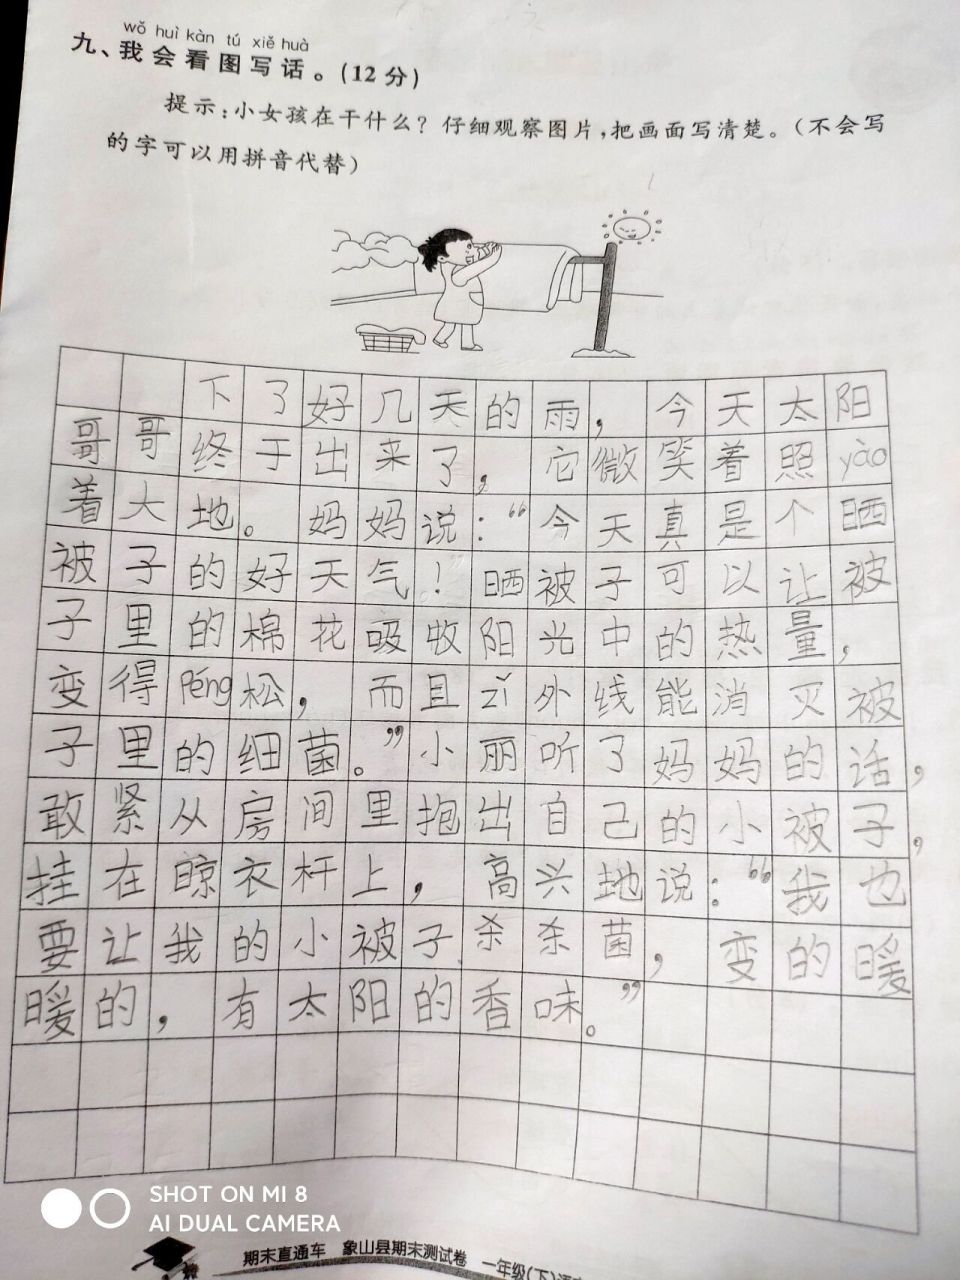 wǒ huì kàn tú xiě huà
九、我会看图写话。(12分)
提示:小女孩在干什么?仔细观察图片,把画面写清楚。(不会写
的字可以用拼音代替)
下了好几天的雨，今天太阳
哥哥终于出来了。它微笑着照yào
着大地。妈妈说：“今天真是个晒
被子的好天气！”晒被子可以让被
子里的棉花吸收阳光中的热量，
变得Péng松，而且zǐ外线能消灭被
子里的细菌。”小丽听了妈妈的话，
敢紧从房间里抱出自己的小被子，
挂在晾衣杆上，高兴地说：“我也
要让我的小被子杀杀菌，变的暖
暖的，有太阳的香味。”
SHOT ON MI 8
AI DUAL CAMERA
期末直通车 象山县期末测试卷 一年级(下)